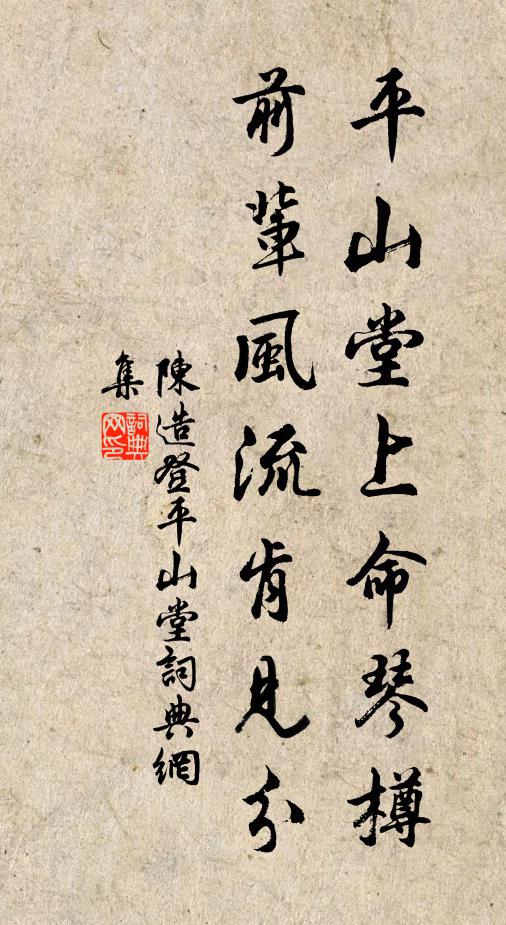 平山堂上命琴樽
前輩風流肯見分
陳造登平山堂詞典網
集
詞典網印